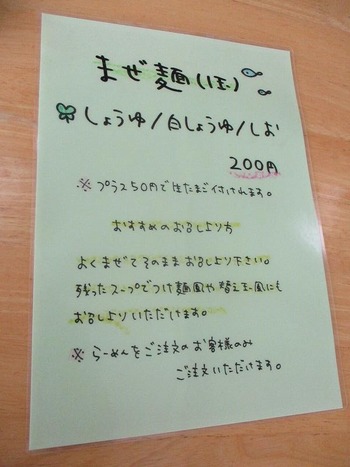 まぜ麺(1玉)
しょうゆ/白しょうゆ/しお
200円
※ プラス50円で生たまご付けれます。
おすすめのお召し上り方
よくまぜてそのままお召し上り下さい。
残ったスープでつけ麺風や替え玉風にも
お召し上りいただけます。
※ らーめんをご注文のお客様のみ
ご注文いただけます。